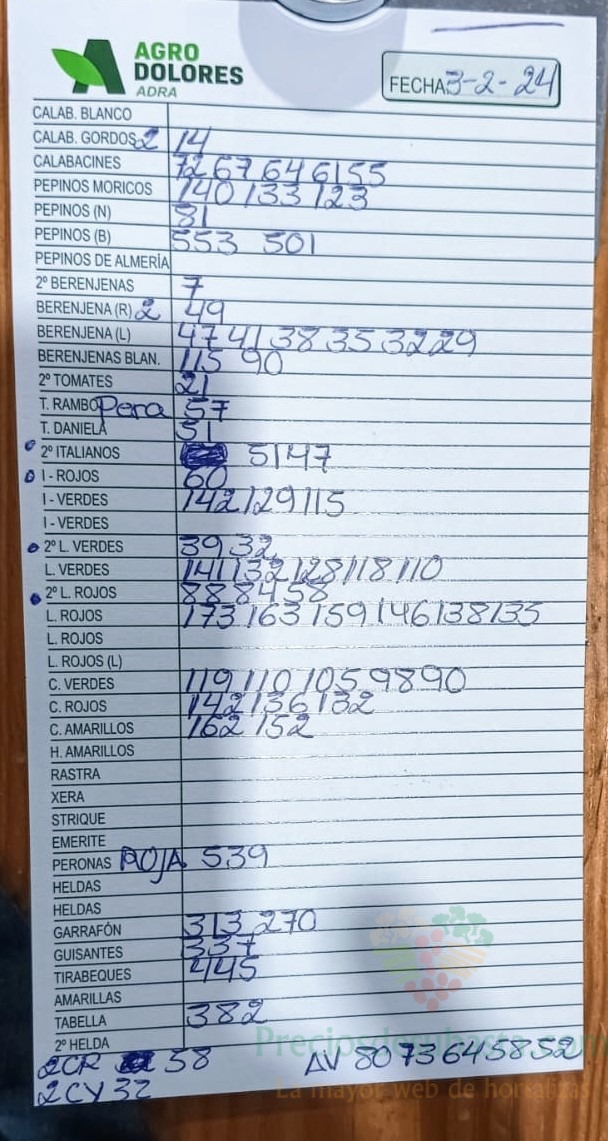 AGRO
DOLORES
ADRA
FECHA 3-2-24
CALAB. BLANCO
CALAB. GORDOS 2 14
CALABACINES 72 67 64 61 55
PEPINOS MORICOS 140 133 123
PEPINOS (N) 81
PEPINOS (B) 553 501
PEPINOS DE ALMERÍA
2º BERENJENAS 7
BERENJENA (R) 2 49
BERENJENA (L) 47 41 38 35 32 29
BERENJENAS BLAN. 115 90
2º TOMATES 21
T. RAMBO Pera 57
T. DANIELA 51
2º ITALIANOS 51 47
I - ROJOS 60
I - VERDES 142 129 115
I - VERDES
2º L. VERDES 39 32
L. VERDES 141 132 128 118 110
2º L. ROJOS 88 84 58
L. ROJOS 173 163 159 146 138 135
L. ROJOS
L. ROJOS (L)
C. VERDES 119 110 105 98 90
C. ROJOS 142 136 132
C. AMARILLOS 162 152
H. AMARILLOS
RASTRA
XERA
STRIQUE
EMERITE
PERONAS ROJA 539
HELDAS
HELDAS
GARRAFÓN 313 270
GUISANTES 337
TIRABEQUES 445
AMARILLAS
TABELLA 382
2º HELDA
2CR 58 AV 80 73 64 58 52
2CY 32
Preciosdesubasta.com
La mayor web de hortalizas